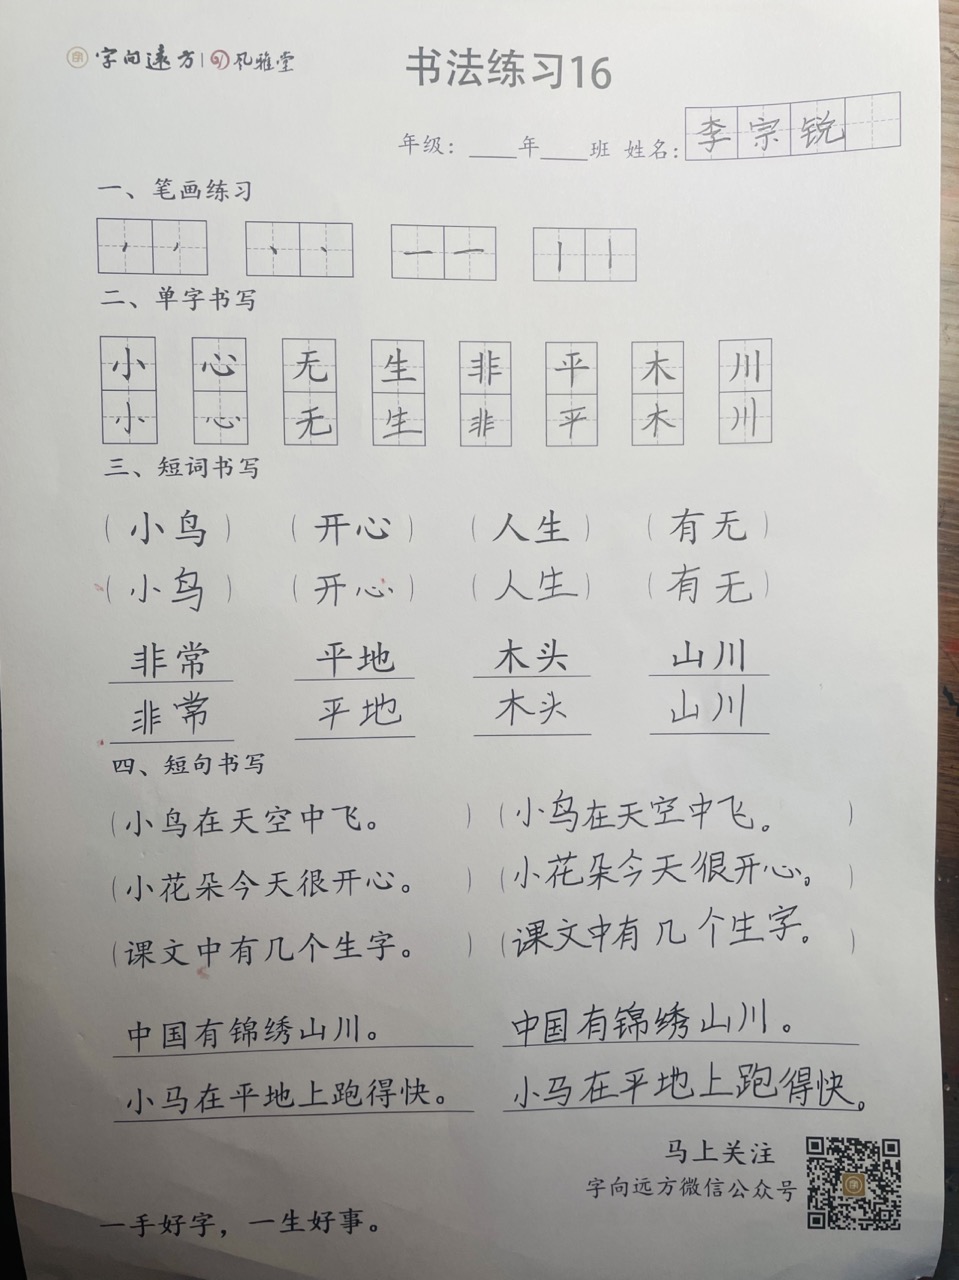 字向远方 | 风雅堂
书法练习16
年级：____年____班 姓名：李宗锐
一、笔画练习
二、单字书写
小 心 无 生 非 平 木 川
小 心 无 生 非 平 木 川
三、短词书写
（小鸟） （开心） （人生） （有无）
（小鸟） （开心） （人生） （有无）
非常 平地 木头 山川
非常 平地 木头 山川
四、短句书写
（小鸟在天空中飞。 ） （小鸟在天空中飞。 ）
（小花朵今天很开心。 ） （小花朵今天很开心。 ）
（课文中有几个生字。 ） （课文中有几个生字。 ）
中国有锦绣山川。 中国有锦绣山川。
小马在平地上跑得快。 小马在平地上跑得快。
马上关注
字向远方微信公众号
字
一手好字，一生好事。